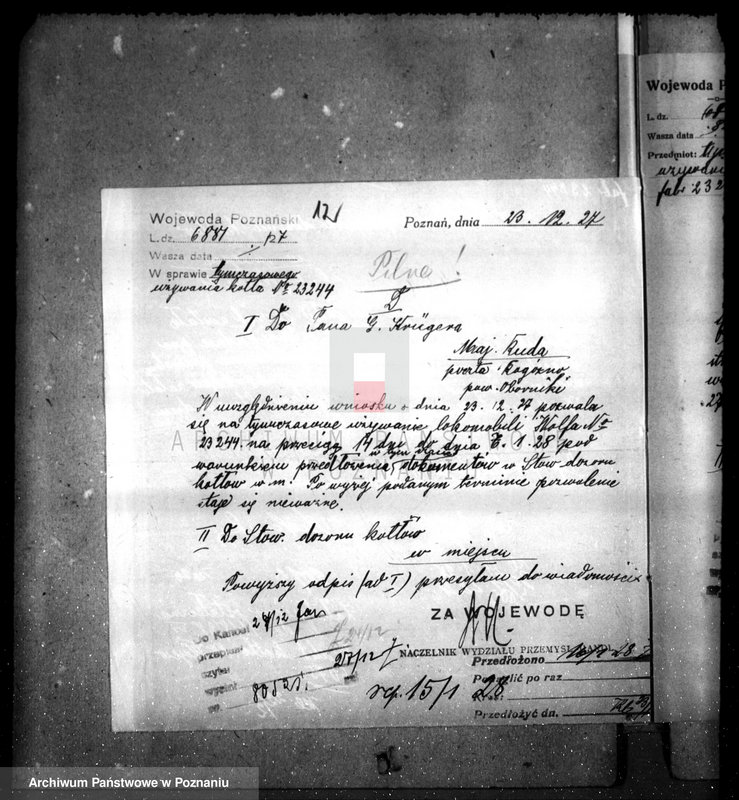 Wojewoda Poznański
L. dz. 6881/27
Wasza data
W sprawie tymczasowego
używania kotła No 23244
Poznań, dnia 23.12.27
Pilne!
I Do Pana G. Krügera
Maj. Ruda
poczta Rogoźno
pow. Oborniki
W uwzględnieniu wniosku z dnia 23.12.27 pozwala
się na tymczasowe używanie lokomobili Wolfa No
23244 na przeciąg 14 dni do dnia 6.1.28 pod
warunkiem przedłożenia w tym czasie dokumentów w Stow. dozoru
kotłów w m. Po wyżej podanym terminie pozwolenie
staje się nieważne.
II Do Stow. dozoru kotłów
w miejscu
Powyższy odpis (ad I) przesyłam do wiadomości
ZA WOJEWODĘ
NACZELNIK WYDZIAŁU PRZEMYSŁ
Do Kancel
24/12
24/12
27/12
Przedłożono
po raz
Przedłożyć dn.
15/1 28
Wojewoda P
L. dz.
Wasza data
Przedmiot:
używani
fabr 232
Archiwum Państwowe w Poznaniu